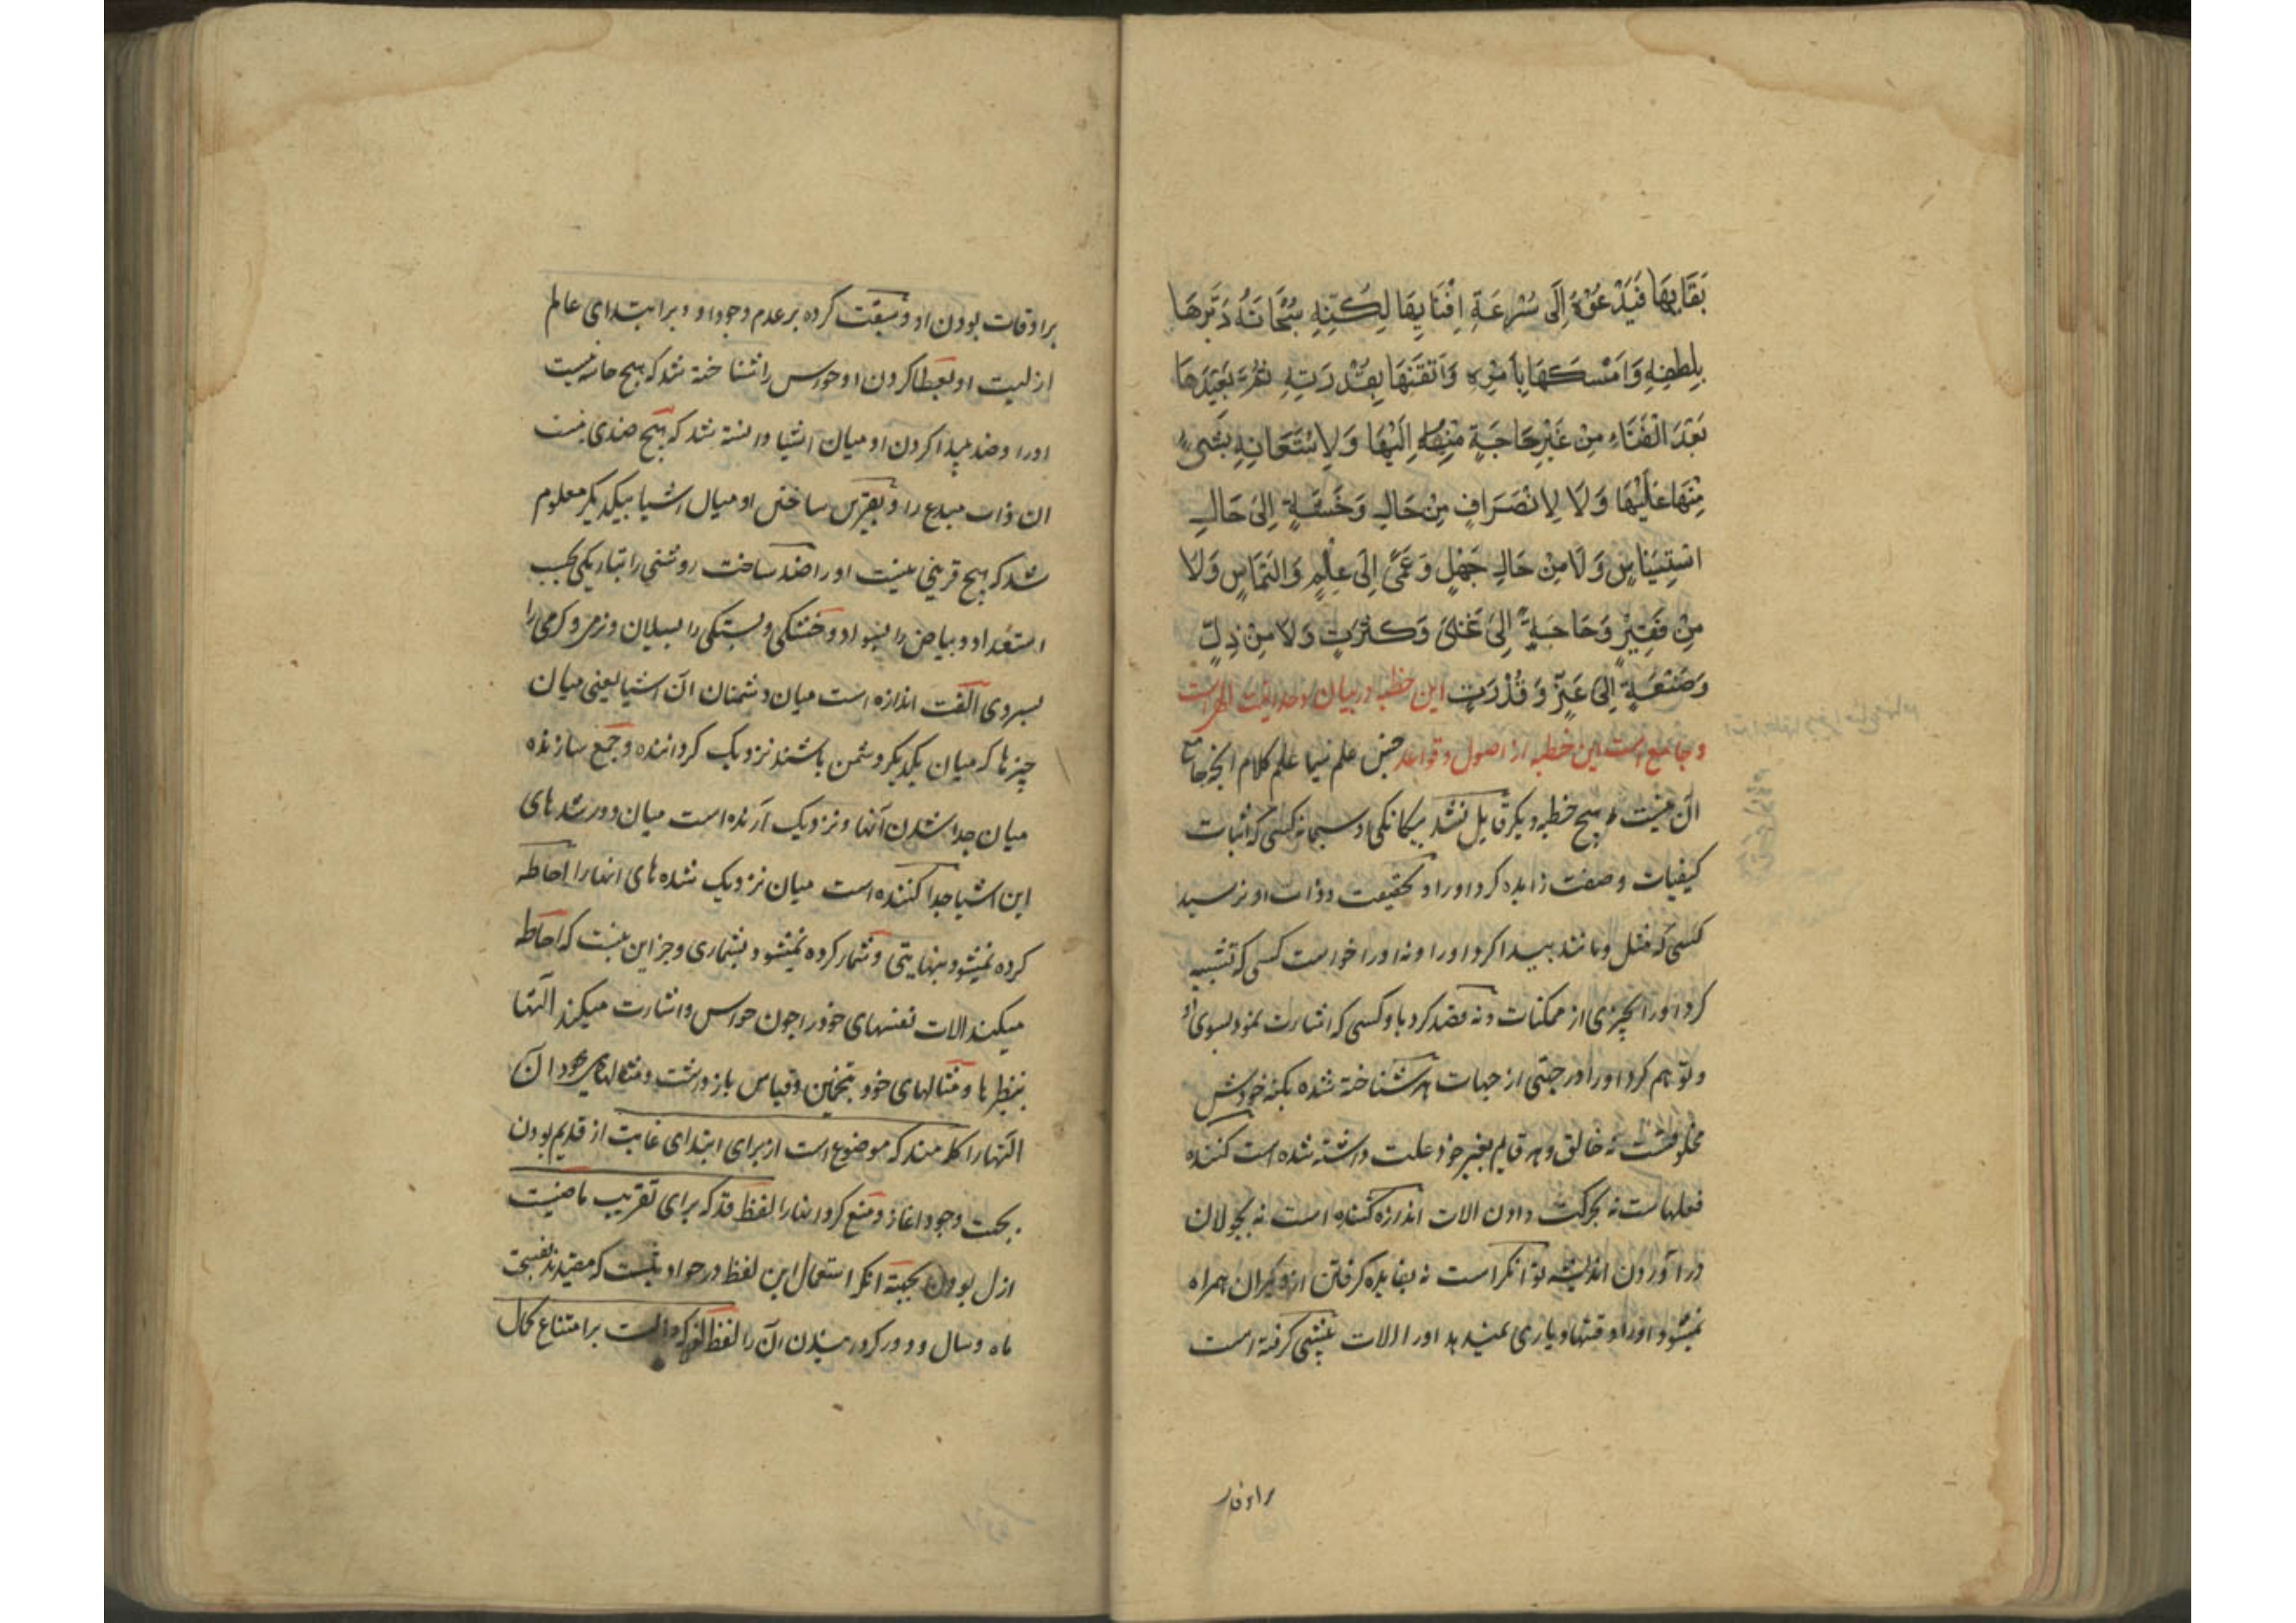 بَقَائِهَا فَيَدْعُوْهُ إِلَى سُرْعَةِ اِفْنَائِهَا لٰكِنَّهُ سُبْحَانَهُ دَبَّرَهَا
بِلُطْفِهِ وَاَمْسَكَهَا بِاَمْرِهِ وَاَتْقَنَهَا بِقُدْرَتِهِ ثُمَّ يُعِيْدُهَا
بَعْدَ الْفَنَاءِ مِنْ غَيْرِ حَاجَةٍ مِنْهُ اِلَيْهَا وَلَا اسْتَعَانِهِ بِشَيْءٍ
مِنْهَا عَلَيْهَا وَلَا لِانْصَرَافٍ مِنْ حَالِ وَحْشَةٍ اِلىٰ حَالِ
اسْتِينَاسٍ وَلَا مِنْ حَالِ جَهْلٍ وَعَمًى اِلىٰ عِلْمٍ وَالْتِمَاسٍ وَلَا
مِنْ فَقْرٍ وَحَاجَةٍ اِلىٰ غَنِىً وَكَثْرَتٍ وَلَا مِنْ ذِلٍّ
وَضَعَةٍ اِلىٰ عَزٍّ وَقُدْرَتٍ این خطبه در بیان وحدانیت الهی است
و جامع است این خطبه از اصول و قواعد جنس علم نیما علم کلام انچه جامع
آن نیست هیچ خطبه دیگر قایل نشد بیکانکی او سبحانه کسی که اثبات
کیفیات و صفت زایده کرد او را و بحقیقت و ذات او نرسید
کسی که مثل و مانند پیدا کرد او را و نه او را خواست کسی که تشبیه
کرد او را بچیزی از ممکنات و نه قصد کرد باو کسی که اشارت نمود بسوی او
و توهم کرد او را در جهتی از جهات هر شناخته شده بکنه خودش
مخلوقست نه خالق و هر قایم بغیر خود علت داشته شده است کننده
فعلهاست نه بحرکت دادن الات اندازه کننده است نه بجولان
در آوردن اندیشه توانکر است نه بفایده کرفتن از دیکران همراه
نمیشود او را وقتها و یاری نمیدهد او را الات پیشی کرفته است
براوقات
بر اوقات بودن او و سبقت کرده بر عدم وجود او و بر ابتدای عالم
ازلیت او بعطا کردن او حواس را شناخته شد که هیچ حاسه نیست
او را و ضد پیدا کردن او میان اشیا دانسته شد که هیچ ضدی نیست
ان ذات مبدع را و بقرین ساختن او میان اشیا بیکدیکر معلوم
شد که هیچ قرینی نیست او را ضد ساخت روشنی را بتاریکی بحسب
استعداد و بیاض را بسواد و خشکی و بستکی را بسیلان و نرمی و کرمی را
بسردی الفت اندازه است میان دشمنان ان اشیا یعنی میان
چیزها که میان یکدیکر دشمن باشند نزدیک کرداننده و جمع سازنده
میان جدا شدن آنها و نزدیک آرنده است میان دور شدهای
این اشیا جدا کننده است میان نزدیک شده های انها را احاطه
کرده نمیشود بنهایتی و شمار کرده نمیشود بشماری و جز این نیست که احاطه
میکند الات نفسهای خود را چون حواس و اشارت میکند آلتها
بنظرها و مثالهای خود بتخمین و قیاس بازداشت و مثالهای خود ان
آلتها را کلمه منذ که موضوع است از برای ابتدای غایت از قدیم بودن
بجهت وجود اغاز و منع کرد انها را لفظ قد که برای تقریب ماضیست
ازل بودن بجهته انکه استعمال این لفظ در حوادثست که مقیدند بنسبت
ماه و سال و دور کردانیدن آن را لفظ لولا که دالست بر امتناع کمال